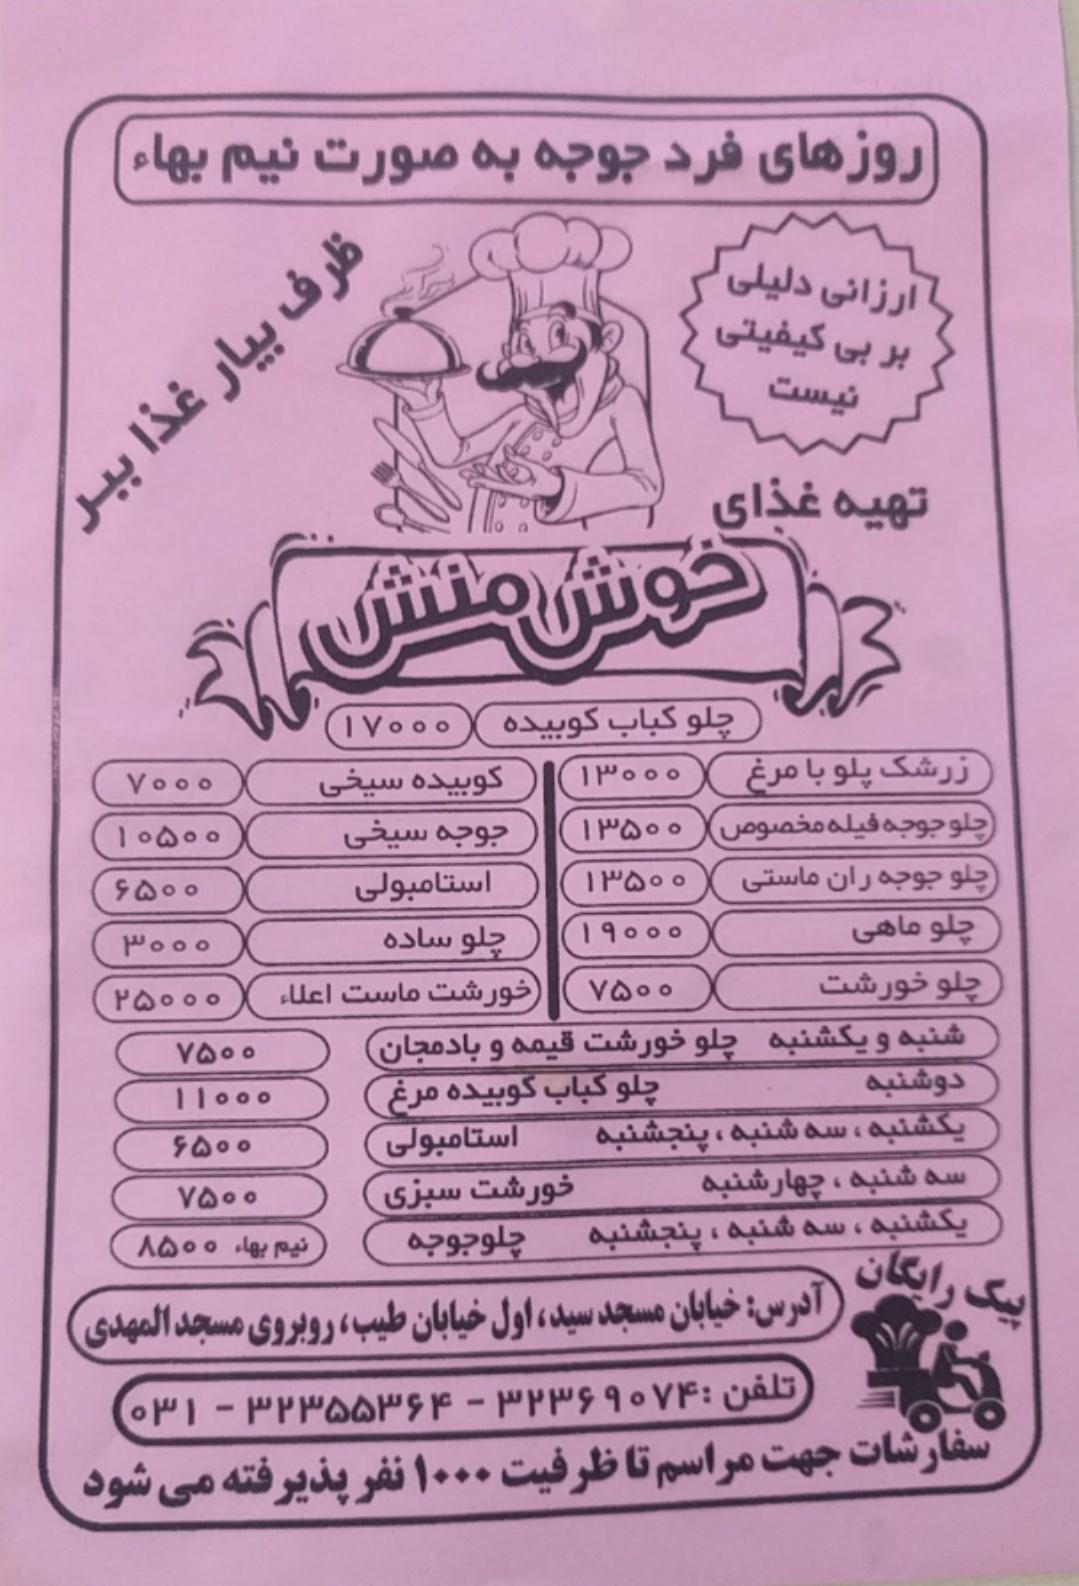 روزهای فرد جوجه به صورت نیم بهاء
ارزانی دلیلی
بر بی کیفیتی
نیست
ظرف بیار غذا ببر
تهیه غذای
خوش منش
چلو کباب کوبیده ۱۷۰۰۰
زرشک پلو با مرغ ۱۳۰۰۰
چلو جوجه فیله مخصوص ۱۳۵۰۰
چلو جوجه ران ماستی ۱۳۵۰۰
چلو ماهی ۱۹۰۰۰
چلو خورشت ۷۵۰۰
کوبیده سیخی ۷۰۰۰
جوجه سیخی ۱۰۵۰۰
استامبولی ۶۵۰۰
چلو ساده ۳۰۰۰
خورشت ماست اعلاء ۲۵۰۰۰
شنبه و یکشنبه چلو خورشت قیمه و بادمجان ۷۵۰۰
دوشنبه چلو کباب کوبیده مرغ ۱۱۰۰۰
یکشنبه ، سه شنبه ، پنجشنبه استامبولی ۶۵۰۰
سه شنبه ، چهارشنبه خورشت سبزی ۷۵۰۰
یکشنبه ، سه شنبه ، پنجشنبه چلوجوجه نیم بهاء ۸۵۰۰
پیک رایگان
آدرس: خیابان مسجد سید، اول خیابان طیب، روبروی مسجد المهدی
تلفن: ۳۲۳۶۹۰۷۴ - ۳۲۳۵۵۳۶۴ - ۰۳۱
سفارشات جهت مراسم تا ظرفیت ۱۰۰۰ نفر پذیرفته می شود